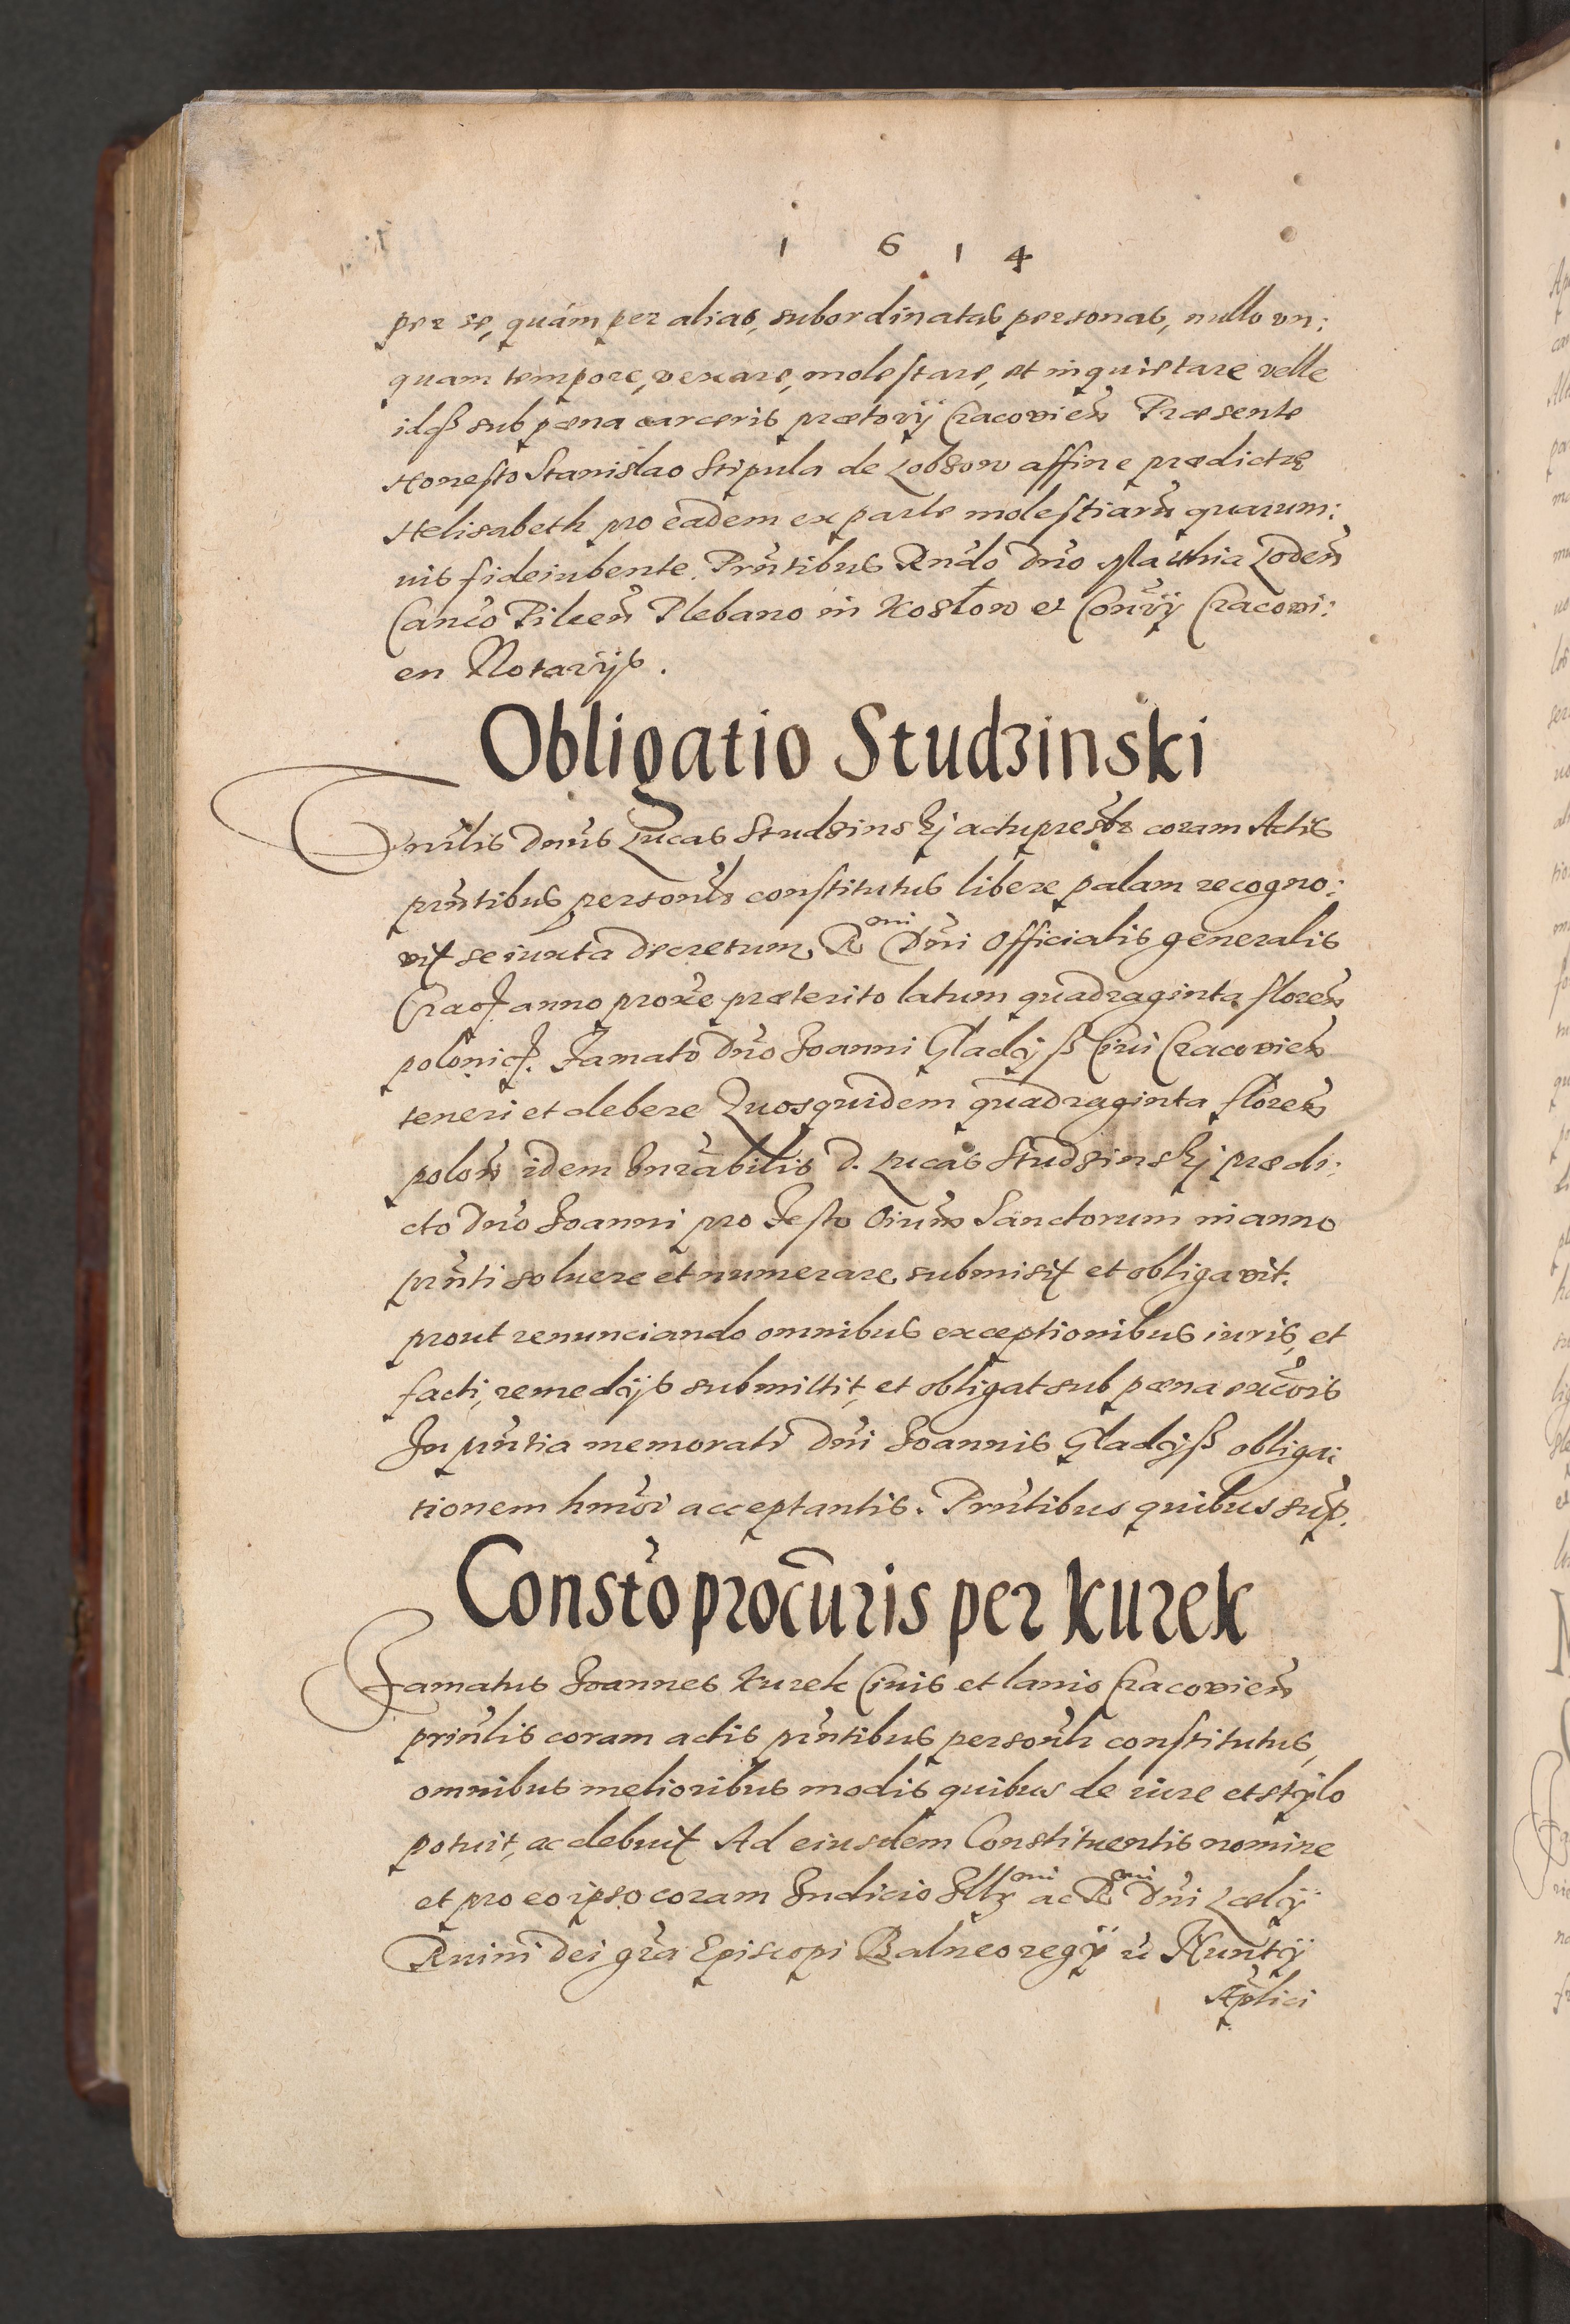 1 6 1 4
per se, quám per alias, subordinatas personas, nullo vn:
quam tempore, vexare, molestare, et inquietare velle
idqꝫ sub pœna carceris prætorij Cracovień Præsente
Honesto Stanislao Stipula de Lobzow affine prædictæ
Helisabeth pro eadem ex parte molestiarū quarum:
uis fideiubente. Prńtibus Rndo Dno Matthia Loden̄
Canco Pilcen̄ Plebano in Kozłow et Conrij Cracovi:
en Notarijs.
Obligatio Studzinski
Gnrlis Dnus Lucas Studzinskj actu presbr coram Actis
prńtibus personlr constitutus libere palam recogno:
vit se iuxta decretum Rmi Dni Officialis generalis
Crac anno proxe præterito latum quadraginta floren̄
polonic. Famato Dno Joanni Gladyß Ciui Cracovien̄
teneri et debere Quosquidem quadraginta floren̄
polon̄ idem Gnrabilis D. Lucas Studzinskj prædi:
cto Dno Joanni pro Festo Oium Sanctorum in anno
prńti soluere et numerare submisit et obligavit.
prout renunciando omnibus exceptionibus iuris, et
facti, remedijs submittit, et obligat sub pœna excois
In prńtia memorati Dni Joannis Gladyß obliga:
tionem hmoi acceptantis. Prńtibus quibus sup.
Consto procuris per Kurek
Famatus Joannes Kurek Ciuis et lanio Cracovien̄
prinlis coram actis prńtibus personlr constitutus,
omnibus melioribus modis quibus de iure et stylo
potuit, ac debuit Ad eiusdem Constituentis nomine
et pro eo ipso coram Judicio Illrmi ac Rmi Dni Lælij
Ruini Dei gra Episcopi Balneoregij et Nuntij
Aplici